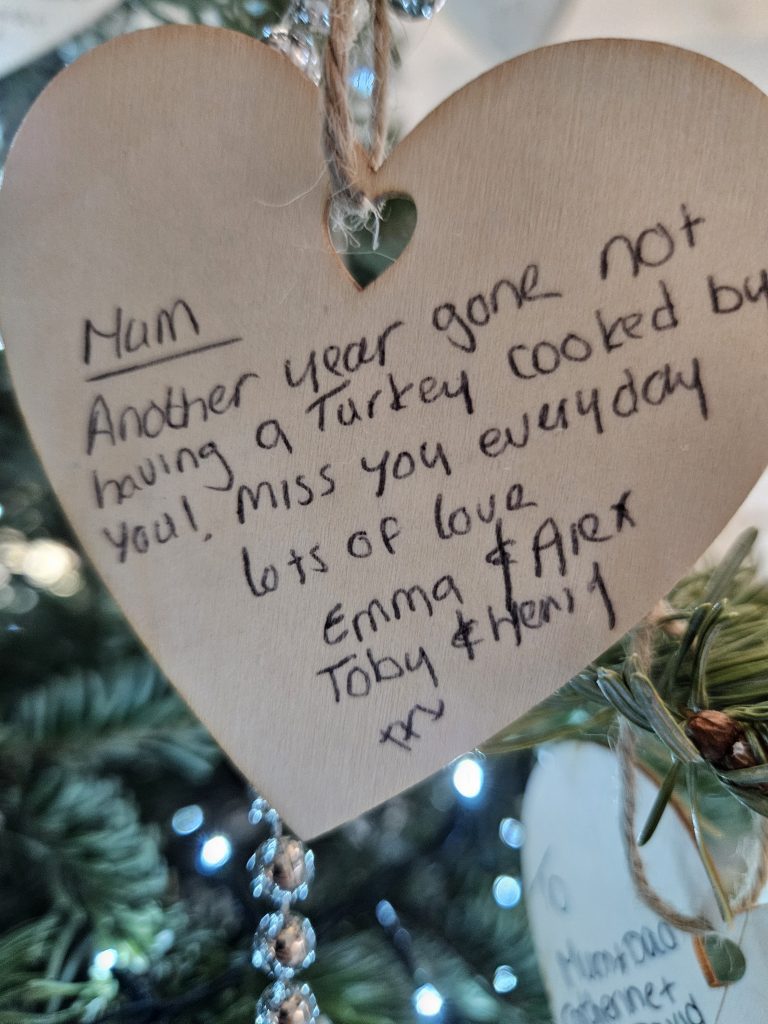 Mum
Another year gone not
having a Turkey cooked by
you!. Miss you everyday
lots of love
Emma & Alex
Toby & Henry
xxx
To
Mum+Dad